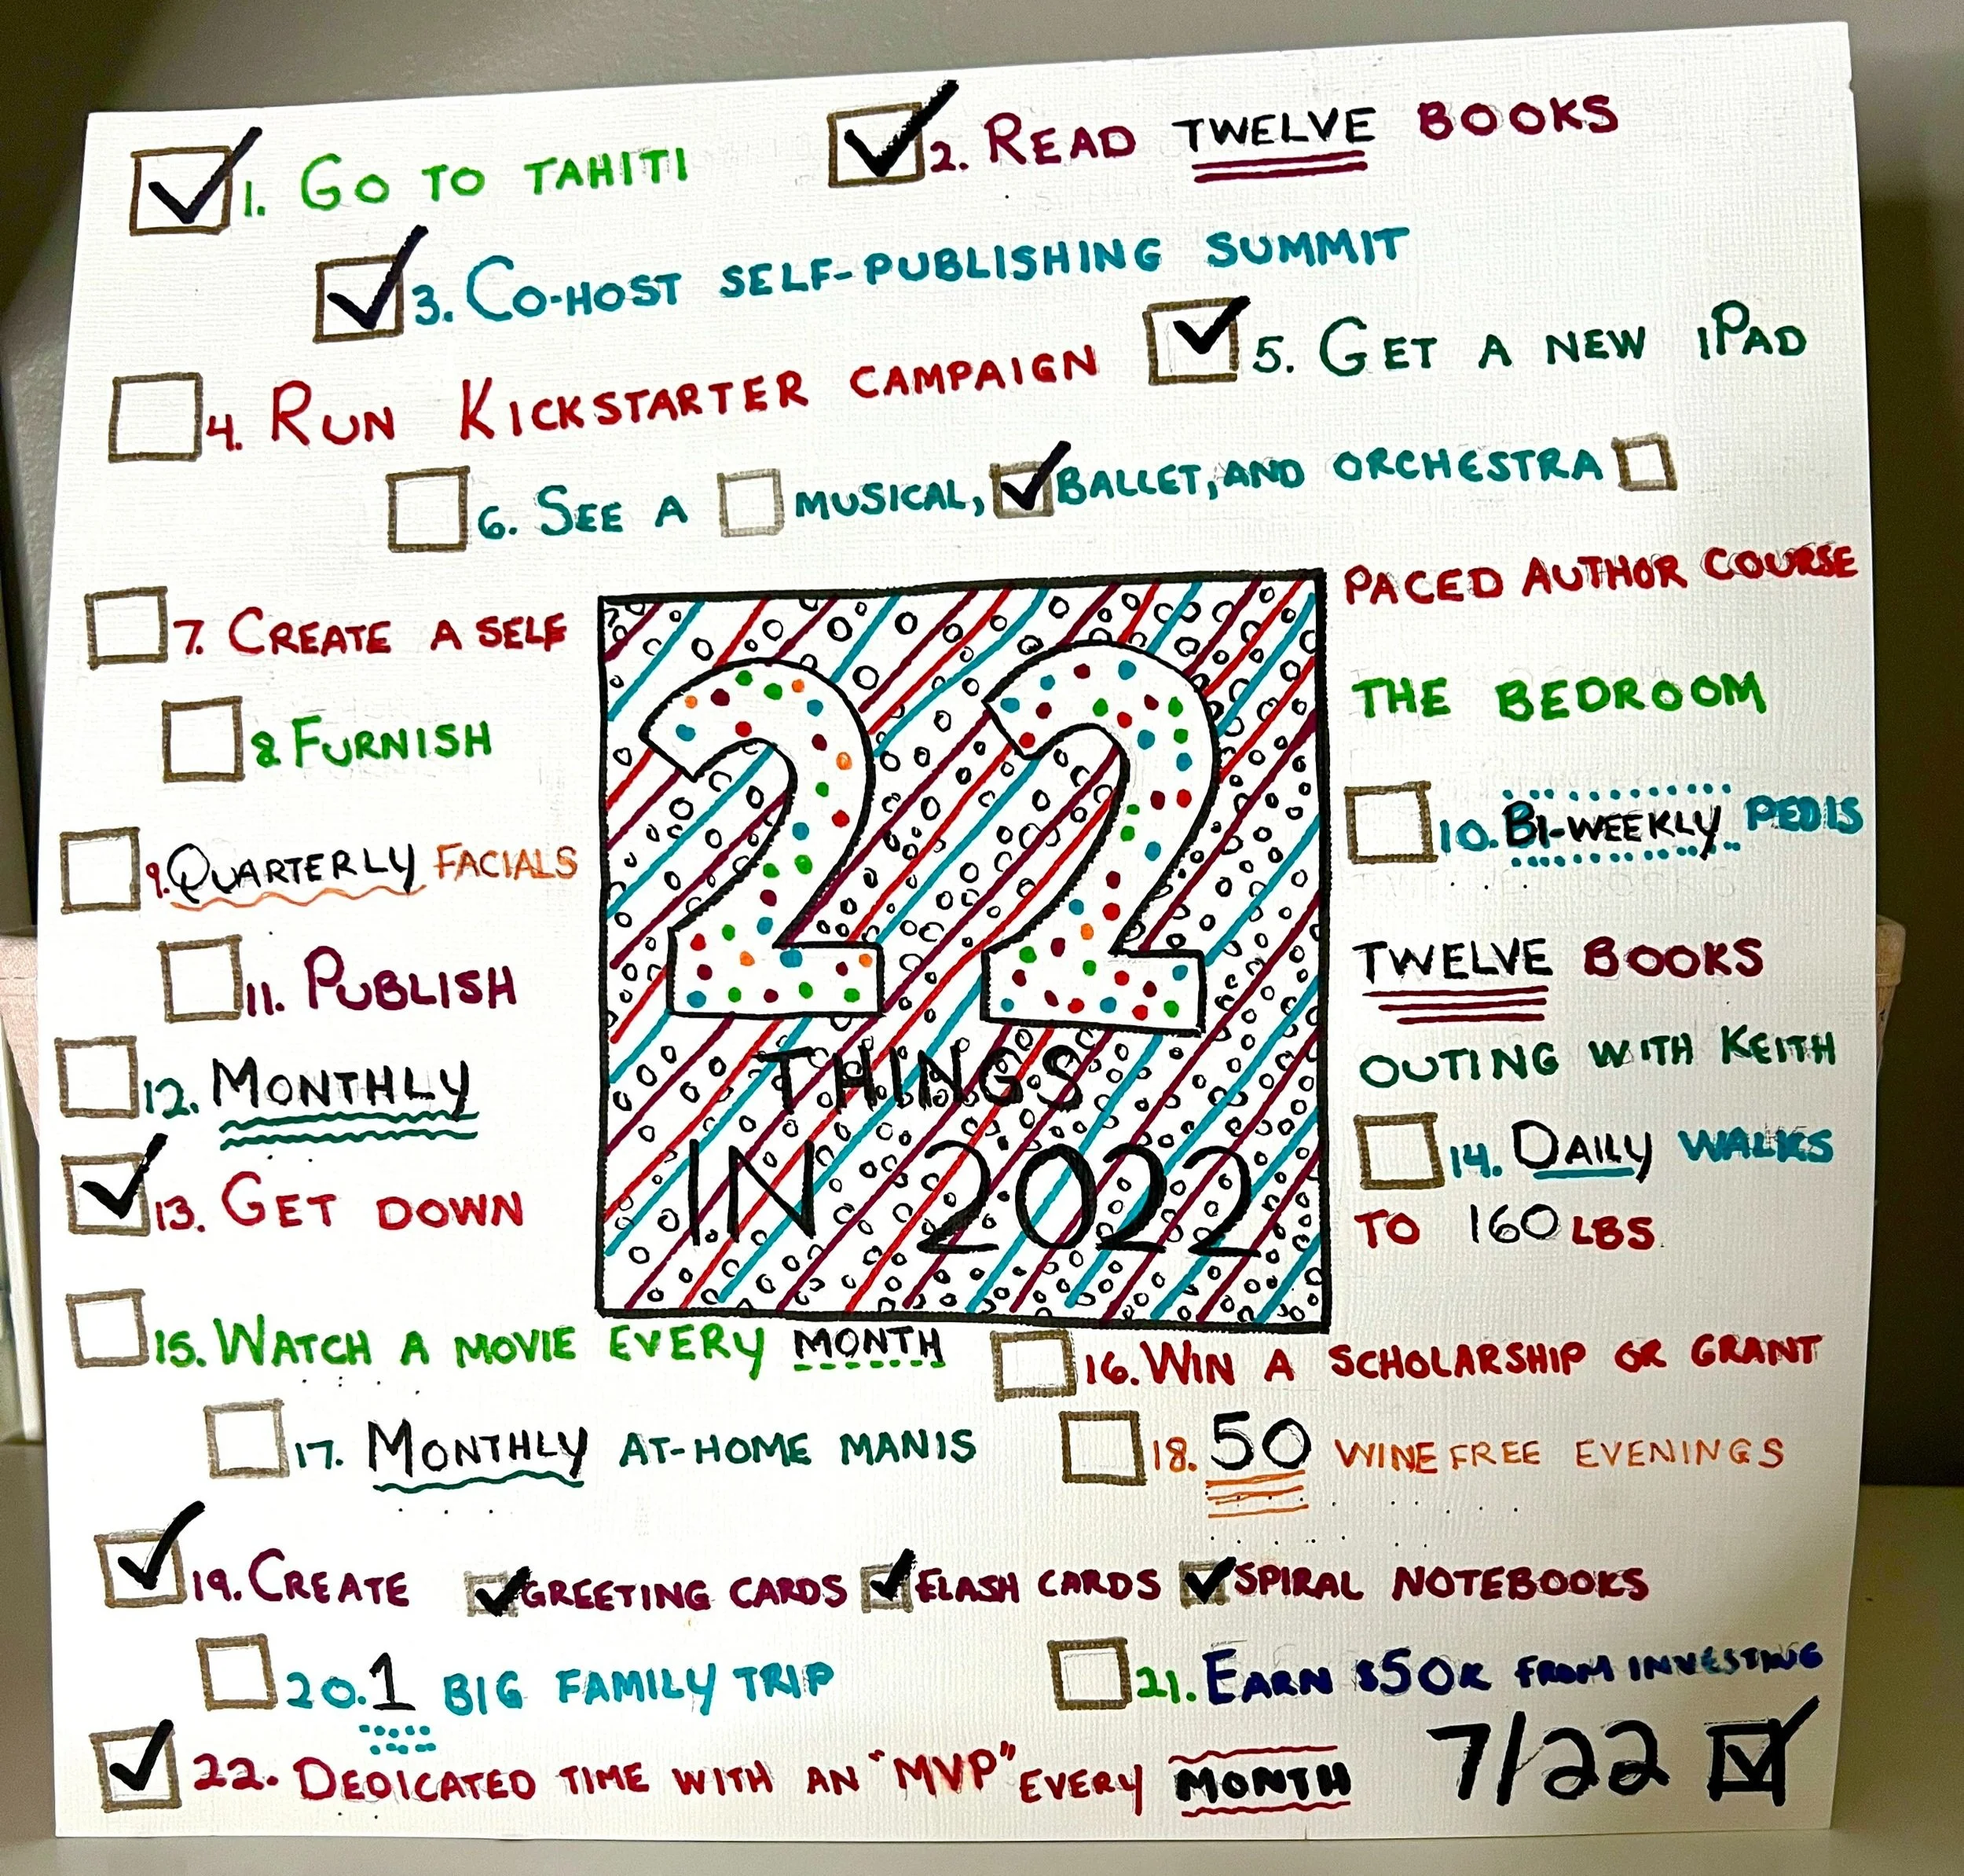 ☑ 1. GO TO TAHITI ☑ 2. READ TWELVE BOOKS
☑ 3. CO-HOST SELF-PUBLISHING SUMMIT
☐ 4. RUN KICKSTARTER CAMPAIGN ☑ 5. GET A NEW iPAD
☐ 6. SEE A ☐ MUSICAL, ☑ BALLET, AND ORCHESTRA ☐
☐ 7. CREATE A SELF PACED AUTHOR COURSE
☐ 8 FURNISH THE BEDROOM
☐ 9. QUARTERLY FACIALS ☐ 10. BI-WEEKLY PEDIS
☐ 11. PUBLISH TWELVE BOOKS
☐ 12. MONTHLY OUTING WITH KEITH
☐ 14. DAILY WALKS
☑ 13. GET DOWN TO 160 LBS.
22
THINGS
IN 2022
☐ 15. WATCH A MOVIE EVERY MONTH ☐ 16. WIN A SCHOLARSHIP OR GRANT
☐ 17. MONTHLY AT-HOME MANIS ☐ 18. 50 WINE FREE EVENINGS
☑ 19. CREATE ☑ GREETING CARDS ☑ FLASH CARDS ☑ SPIRAL NOTEBOOKS
☐ 20. 1 BIG FAMILY TRIP ☐ 21. EARN $50K FROM INVESTING
☑ 22. DEDICATED TIME WITH AN "MVP" EVERY MONTH 7/22 ☑